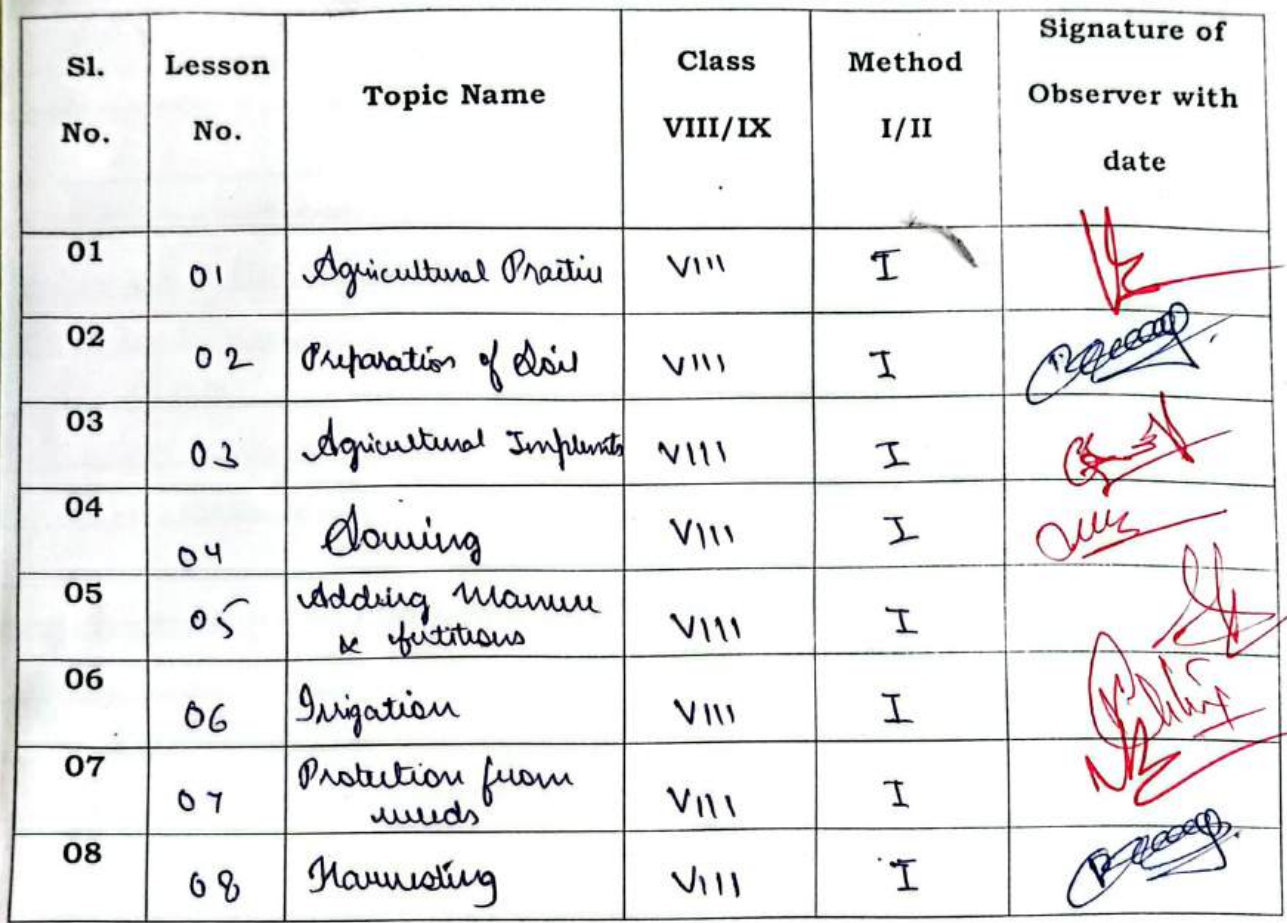 Sl. No. Lesson No. Topic Name Class VIII/IX Method I/II Signature of Observer with date
01 01 Agricultural Practice VIII I
02 02 Preparation of Soil VIII I
03 03 Agricultural Implents VIII I
04 04 Sowing VIII I
05 05 Adding Manure
&
VIII I
06 06 Irrigation VIII I
07 07 Protection from
weeds VIII I
08 08 Harvesting VIII I